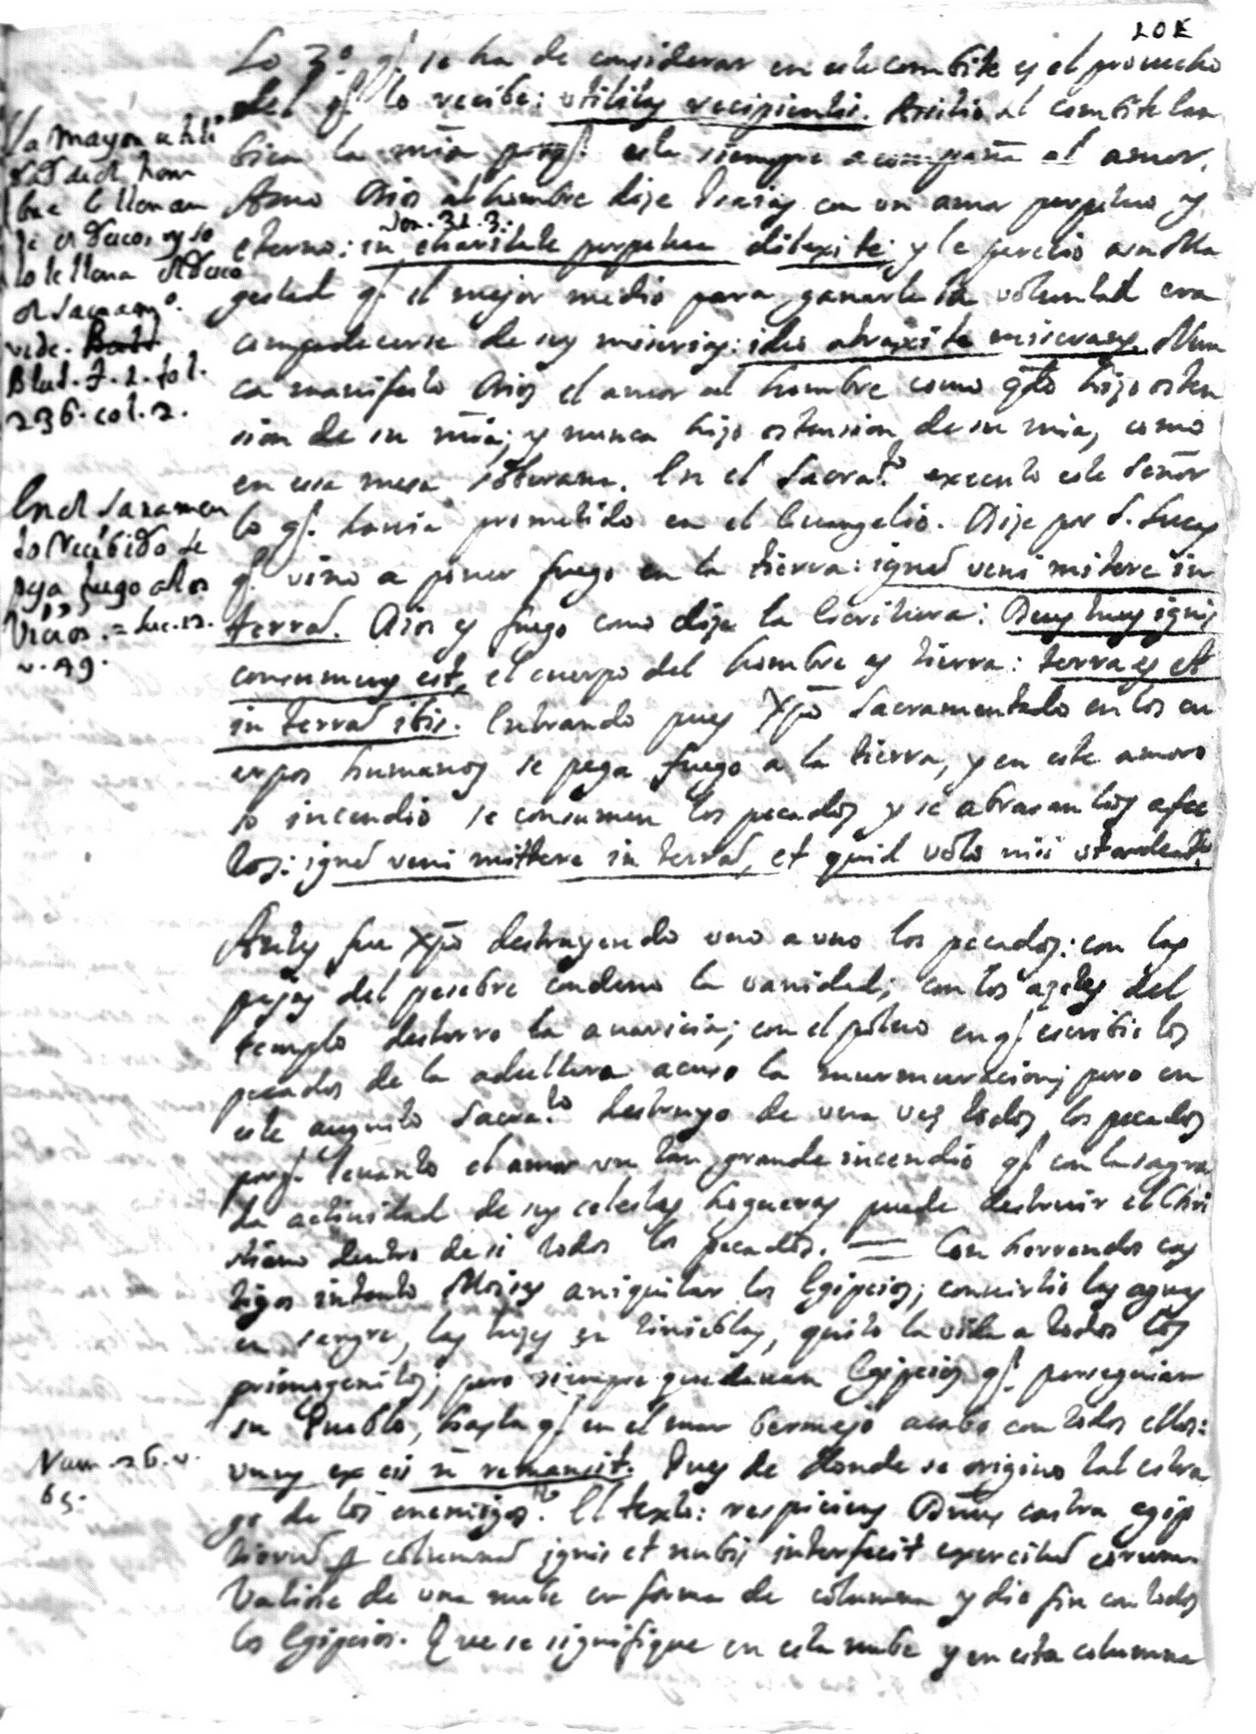 101
Lo 3º. q̃. se ha de considerar en este combite es el prouecho
del q̃. lo recibe: utilitas recipientis. Asistio al combite tan
bien la mĩa porq̃. esta siempre acompaña al amor.
Amo Dios al hombre dize Isaias con un amor perpetuo y
Jer. 31. 3.
eterno: in charitate perpetua dilexi te; y le parecio a su Ma
gestad q̃. el mejor medio para ganarle la voluntad era
compadecerse de sus miserias: ideo atraxi te miserans. Nun
ca manifesto Dios el amor al hombre como q̃do hizo osten
sion de su mĩa; y nunca hizo ostension de su mia, como
en essa mesa soberana. En el Sacra.to executo este Señor
lo q̃. hauia prometido en el Euangelio. Dize por S. Lucas
q̃. vino a poner fuego en la tierra: ignẽ veni mitere in
terrã. Dios es fuego como dize la Escritura: Deus tuus ignis
consumens est, el cuerpo del hombre es tierra: terra es et
in terrã ibis. Entrando pues Xp̃o Sacramentado en los cu
erpos humanos se pega fuego a la tierra, y en este amoro
so incendio se consumen los pecados y se abrasan los afec
tos: ignẽ veni mittere in terrã, et quid volo nisi ut ardeat.
Antes fue Xp̃o destruyendo uno a uno los pecados: con las
pajas del pesebre condeno la vanidad; con los azotes del
templo desterro la auaricia; con el poluo en q̃. escribio los
pecados de la adultera acuso la murmuracion; pero en
este augusto Sacra.to destruyo de una vez todos los pecados
porq̃. leuanto el amor un tan grande incendio q̃. con la sagra
da actiuidad de sus celestes hogueras puede destruir el Chri
stiano dentro de si todos los pecados. = Con horrendos cas
tigos intento Moises aniquilar los Egipcios; conuirtio las aguas
en sangre, las luzes en tinieblas, quito la vida a todos los
primogenitos; pero siempre quedauan Egipcios q̃. perseguian
su Pueblo, hasta q̃. en el mar bermejo acabo con todos ellos:
unus ex eis ñ remansit. Pues de donde se origino tal estra
go de los enemigos? El texto: respiciens Dñus castra egip
tiorũ p columnã ignis et nubis interfecit exercitũ eorum.
Valiose de una nube en forma de columna y dio fin con todos
los Egipcios. Que se signifique en esta nube y en esta columna
la mayor utili
dad del hom
bre
le llenan
lo le llena
el Sacram.to
vide.
Blut. t. 2. fol.
236. col. 2.
En el Sacramen
to Recebido se
pega fuego a los
Vicios. = Luc. 12.
v. 49.
Num. 26. v.
65.